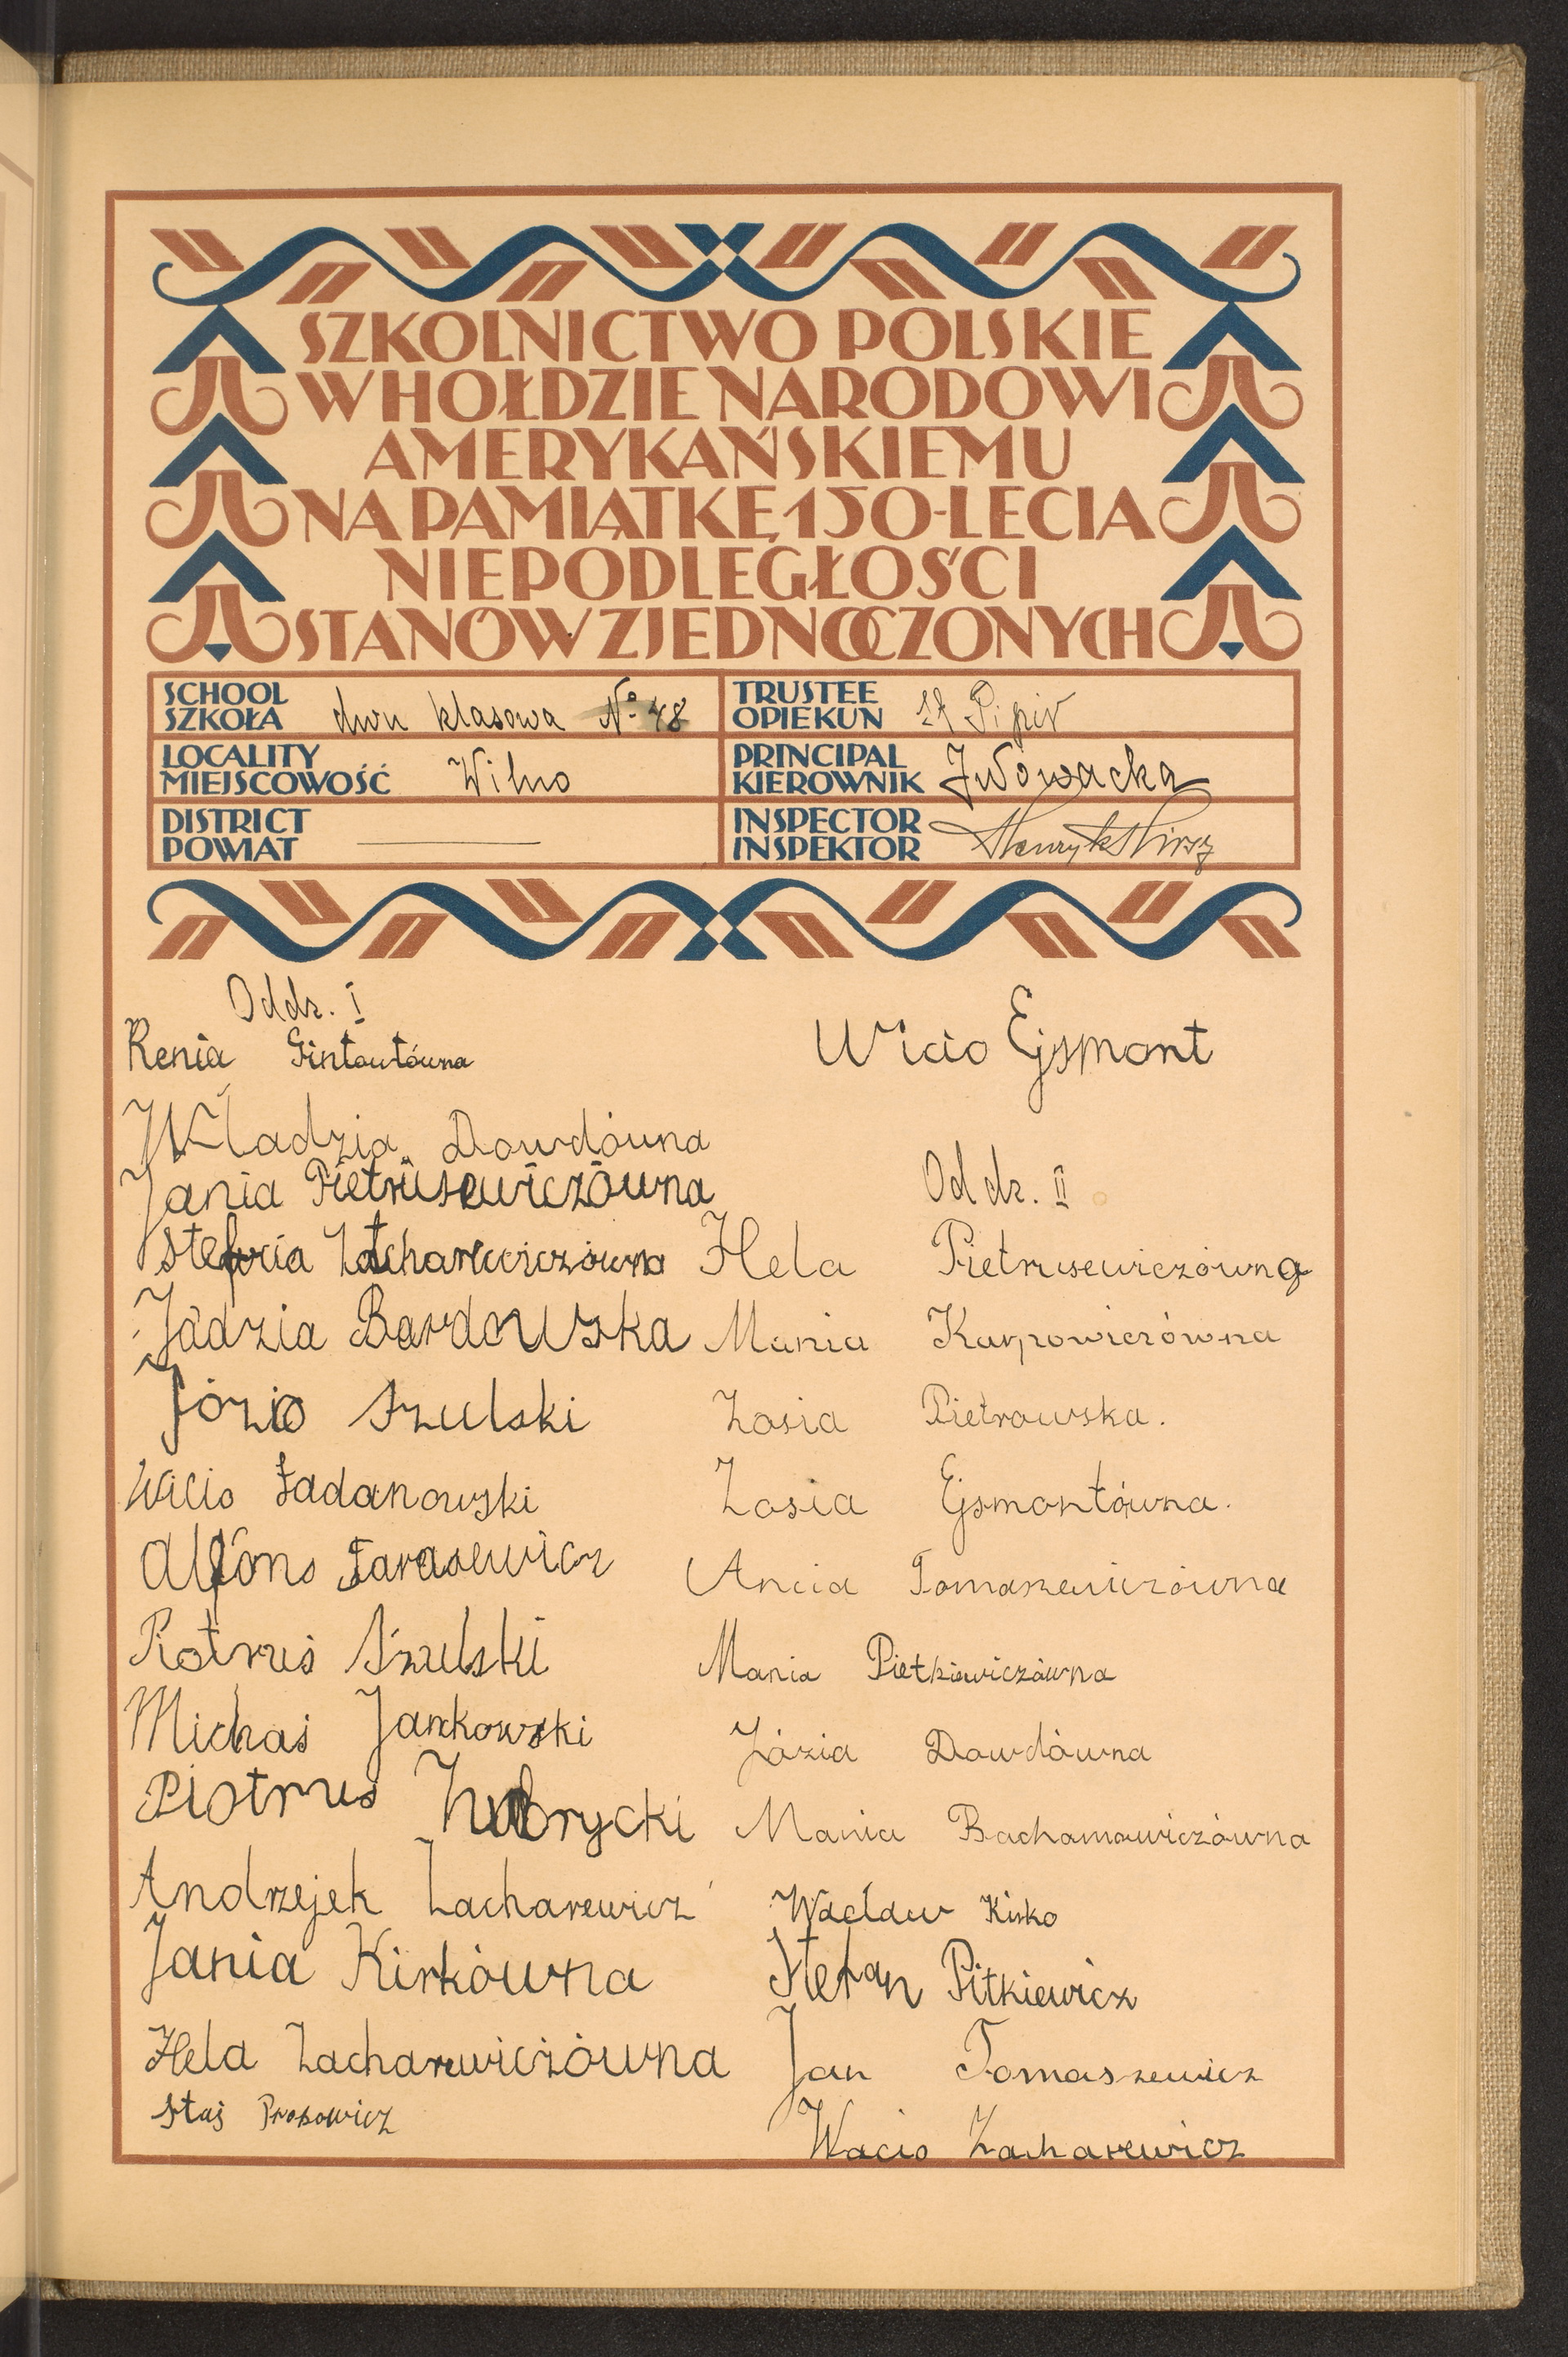 SZKOLNICTWO POLSKIE
W HOŁDZIE NARODOWI
AMERYKAŃSKIEMU
NA PAMIĄTKĘ 150-LECIA
NIEPODLEGŁOŚCI
STANÓW ZJEDNOCZONYCH
SCHOOL
SZKOŁA dwu klasowa № 48
LOCALITY
MIEJSCOWOŚĆ Wilno
DISTRICT
POWIAT
TRUSTEE
OPIEKUN
PRINCIPAL
KIEROWNIK J Nowacka
INSPECTOR
INSPEKTOR Henryk
Oddz. I
Renia Gintowtówna
Władzia Dowdówna
Jania Pietrusewiczówna
Stefcia Zacharewiczówna
Jadzia Bardowska
Józio Szulski
Wicio Ładanowski
Alfons Tarasewicz
Piotruś Szulski
Michaś Jankowski
Piotruś Zubrycki
Andrzejek Zacharewicz
Jania Kirkówna
Hela Zacharewiczówna
Staś Prokowicz
Wicio Ejsmont
Oddz. II
Hela Pietrusewiczówna
Mania Karpowiczówna
Zosia Pietrowska.
Zosia Ejsmontówna.
Ancia Tomaszewiczówna
Mania Pietkiewiczówna
Józia Dowdówna
Mania Bachamowiczówna
Wacław Kirko
Stefan Pitkiewicz
Jan Tomaszewicz
Wacio Zacharewicz